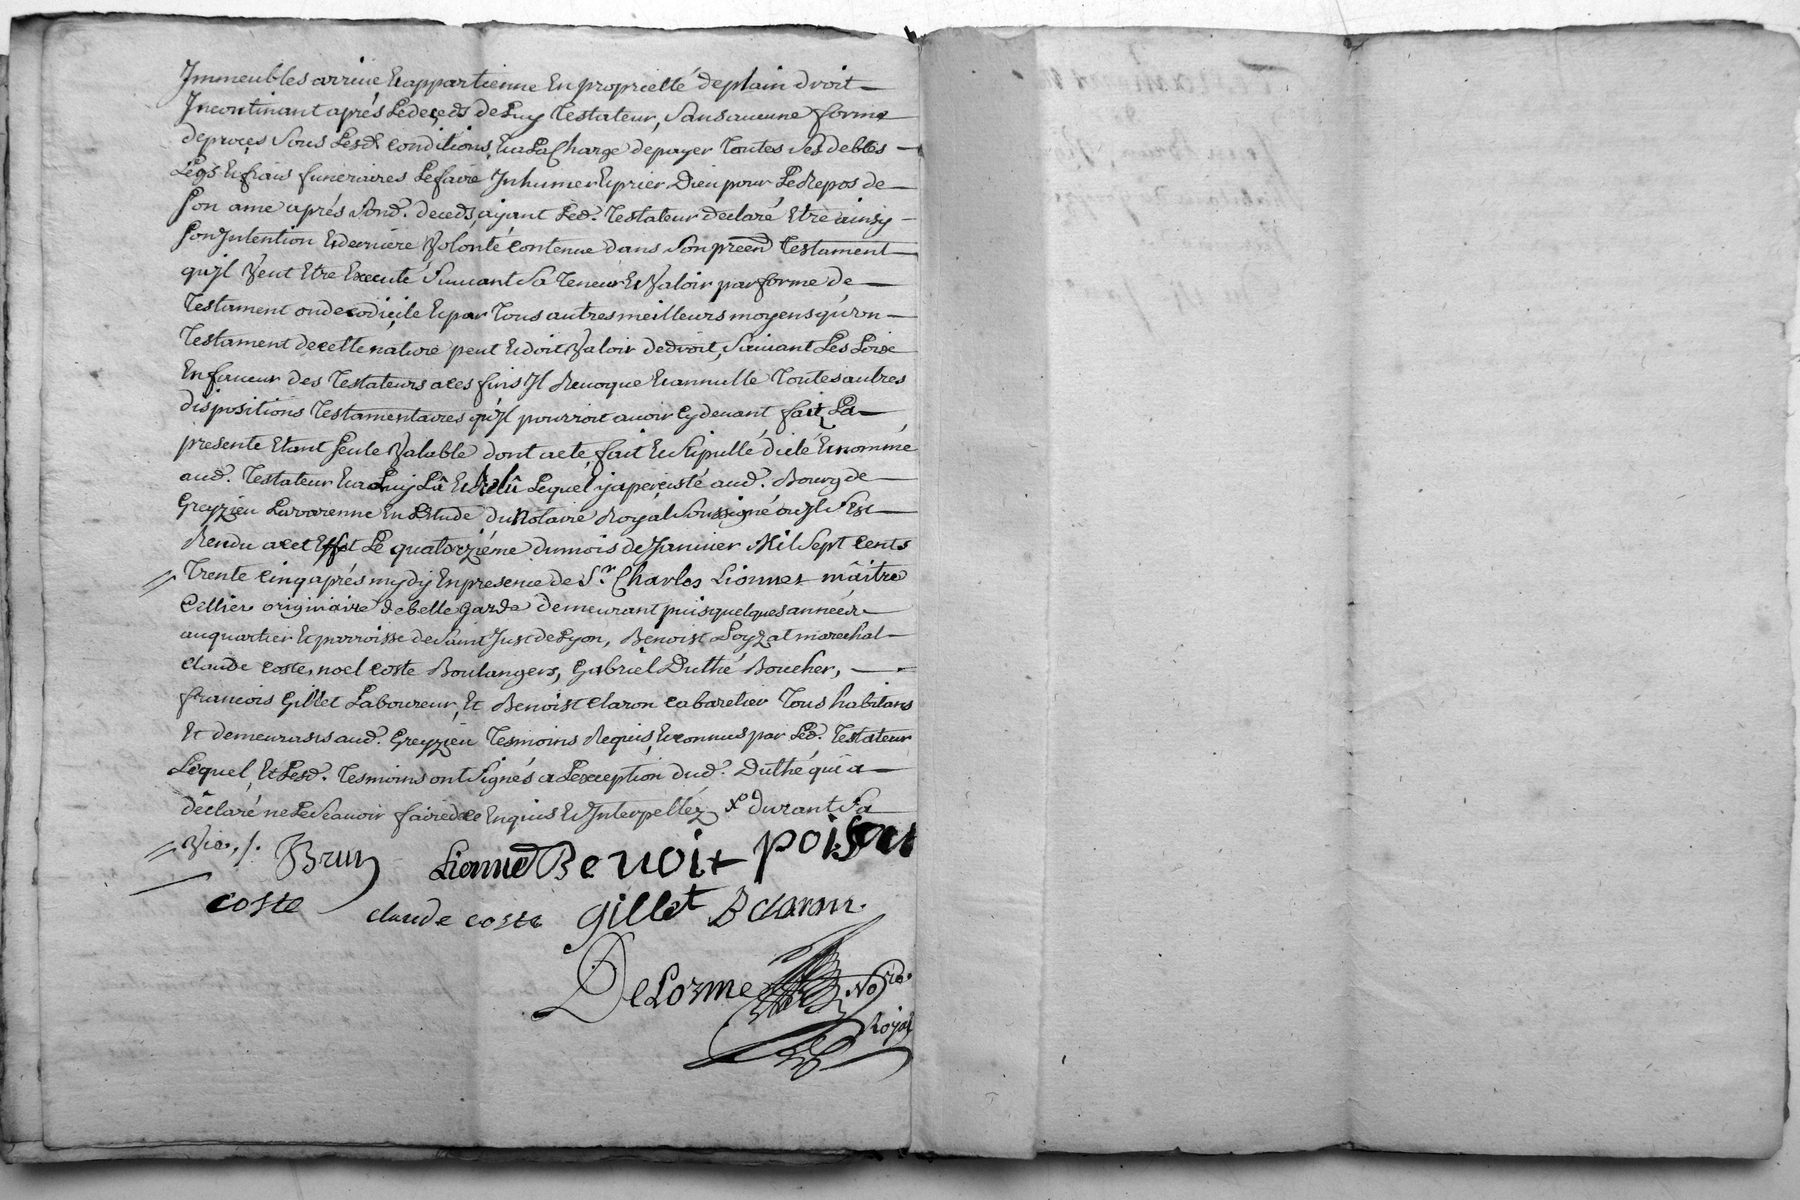 Immeubles arrive Et appartienne En proprietté de plain droit
Incontinant aprés Le deceds de Luy Testateur, Sans aucune forme
de procés Sous Lesd. conditions, Et a La Charge de payer Toutes Ses debtes
Legs Et frais funeraires Le faire Inhumer Et prier Dieu pour Le Repos de
Son ame aprés Sond. deceds ayant Led. Testateur declaré Etre ainsy
Son Intention Et derniere Volonté contenue dans Son preent Testament
qu'Jl Veut Etre Executé Suivant Sa Teneur Et Valoir par forme de
Testament ou de codicile Et par Tous autres meilleurs moyens qu'un
Testament de cette nature peut Et doit Valoir de droit, Suivant Les Loix
En faveur des Testateurs a ces fins Jl Revoque Et annulle Toutes autres
dispositions Testamentaires qu'Jl pourroit avoir Cy devant fait, La
presente Etant Seule Valable dont acte fait Et Stipullé dicté Et nommé
aud. Testateur Et a Luy Lû Et Relû Lequel y a percisté aud. Bourg de
Greyzieu Lavarenne En L'Etude du Notaire Royal Soussigné ou Jl S'Est
Rendu a cet Effet Le quatorziéme du mois de Janvier Mil Sept Cents
Trente Cinq aprés mydy En presence de Sr. Charles Lionnet maitre
Cellier originaire de belle garde demeurant puis quelques années
au quartier Et parroisse de Saint Just de Lyon, Benoist Poyzat marechal
Claude Coste, noel Coste Boulangers, Gabriel Duthé Boucher,
francois Gillet Laboureur, Et Benoist Claron Cabaretier Tous habitans
Et demeurants aud. Greyzieu Tesmoins Requis, Et connus par Led. Testateur
Lequel, Et Lesd. Tesmoins ont Signés a L'exception dud. Duthé qui a
declaré ne Le Scavoir faire de ce Enquis Et Interpellez Xo durant Sa
Vie ./.
Brun Lionnet Benoit poisat
coste claude coste gillet B claron
DeLorme No.re
Royal